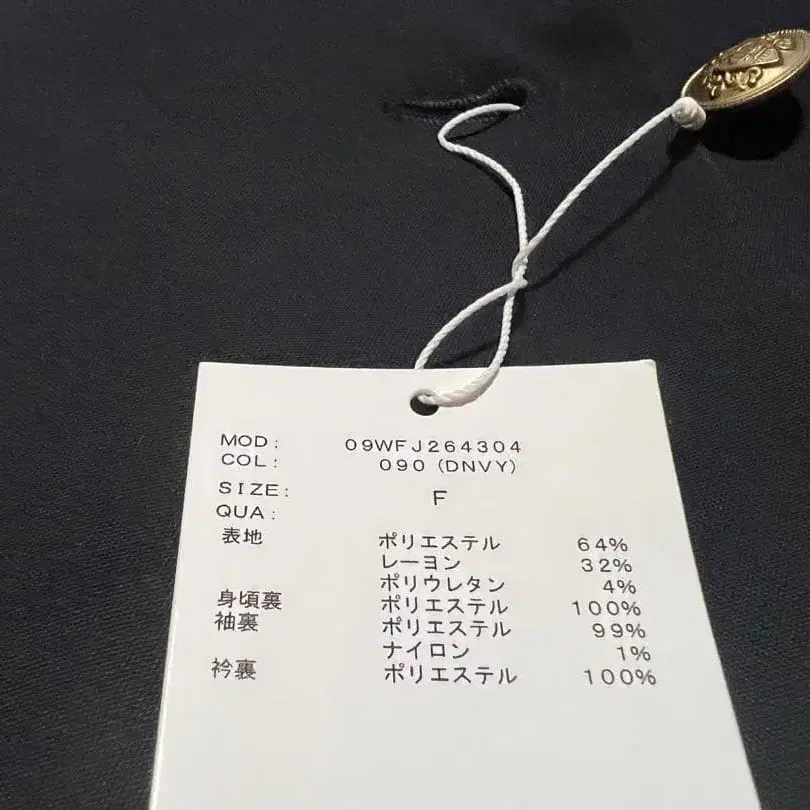 MOD: 09WFJ264304
COL: 090 (DNVY)
SIZE: F
QUA:
表地 ポリエステル 64%
レーヨン 32%
ポリウレタン 4%
身頃裏 ポリエステル 100%
袖裏 ポリエステル 99%
ナイロン 1%
衿裏 ポリエステル 100%